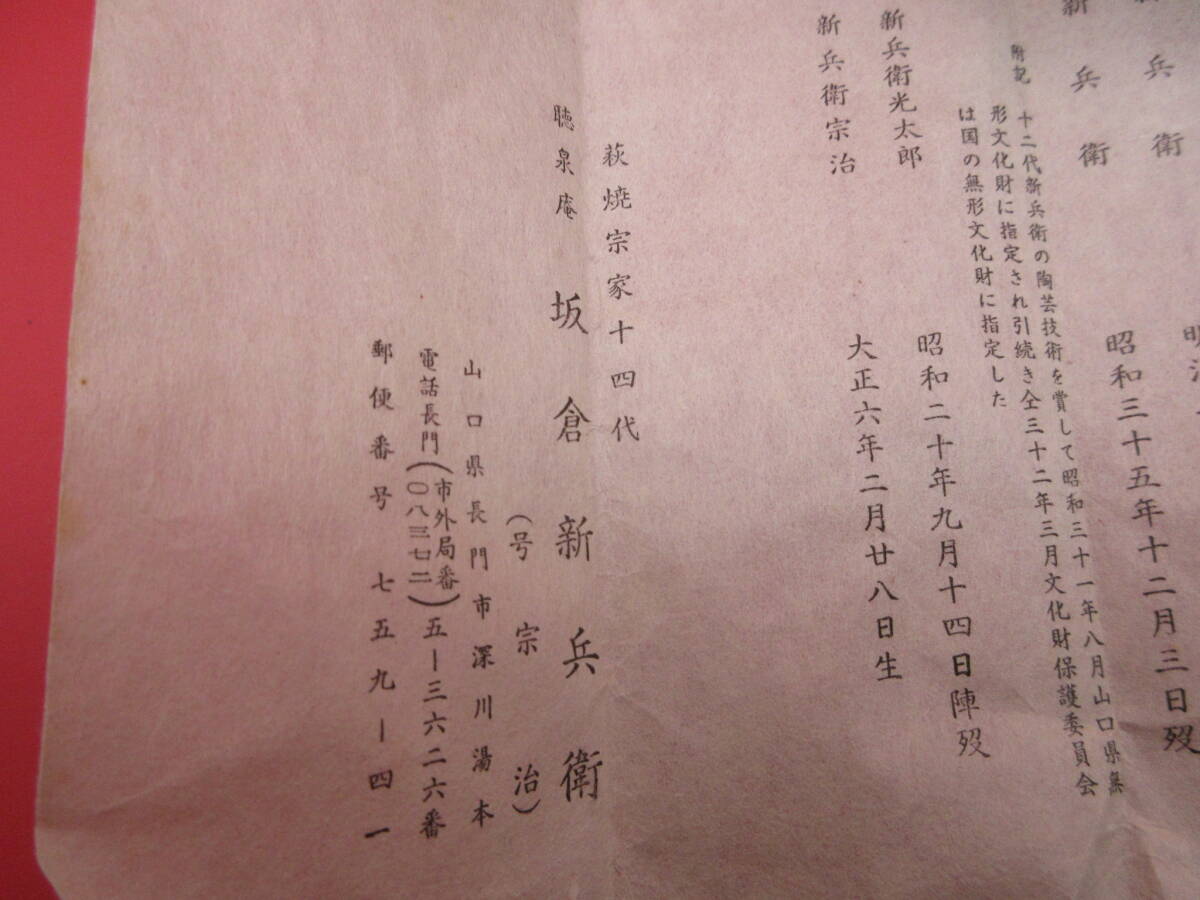 明治
新兵衛
昭和三十五年十二月三日歿
新兵衛
附記 十二代新兵衛の陶芸技術を賞して昭和三十一年八月山口県無
形文化財に指定され引続き仝三十二年三月文化財保護委員会
は国の無形文化財に指定した
新兵衛光太郎 昭和二十年九月十四日陣歿
新兵衛宗治 大正六年二月廿八日生
萩焼宗家十四代
聴泉庵 坂倉新兵衛
(号宗治)
山口県長門市深川湯本
電話長門(市外局番〇八三七二)五-三六二六番
郵便番号 七五九-四一